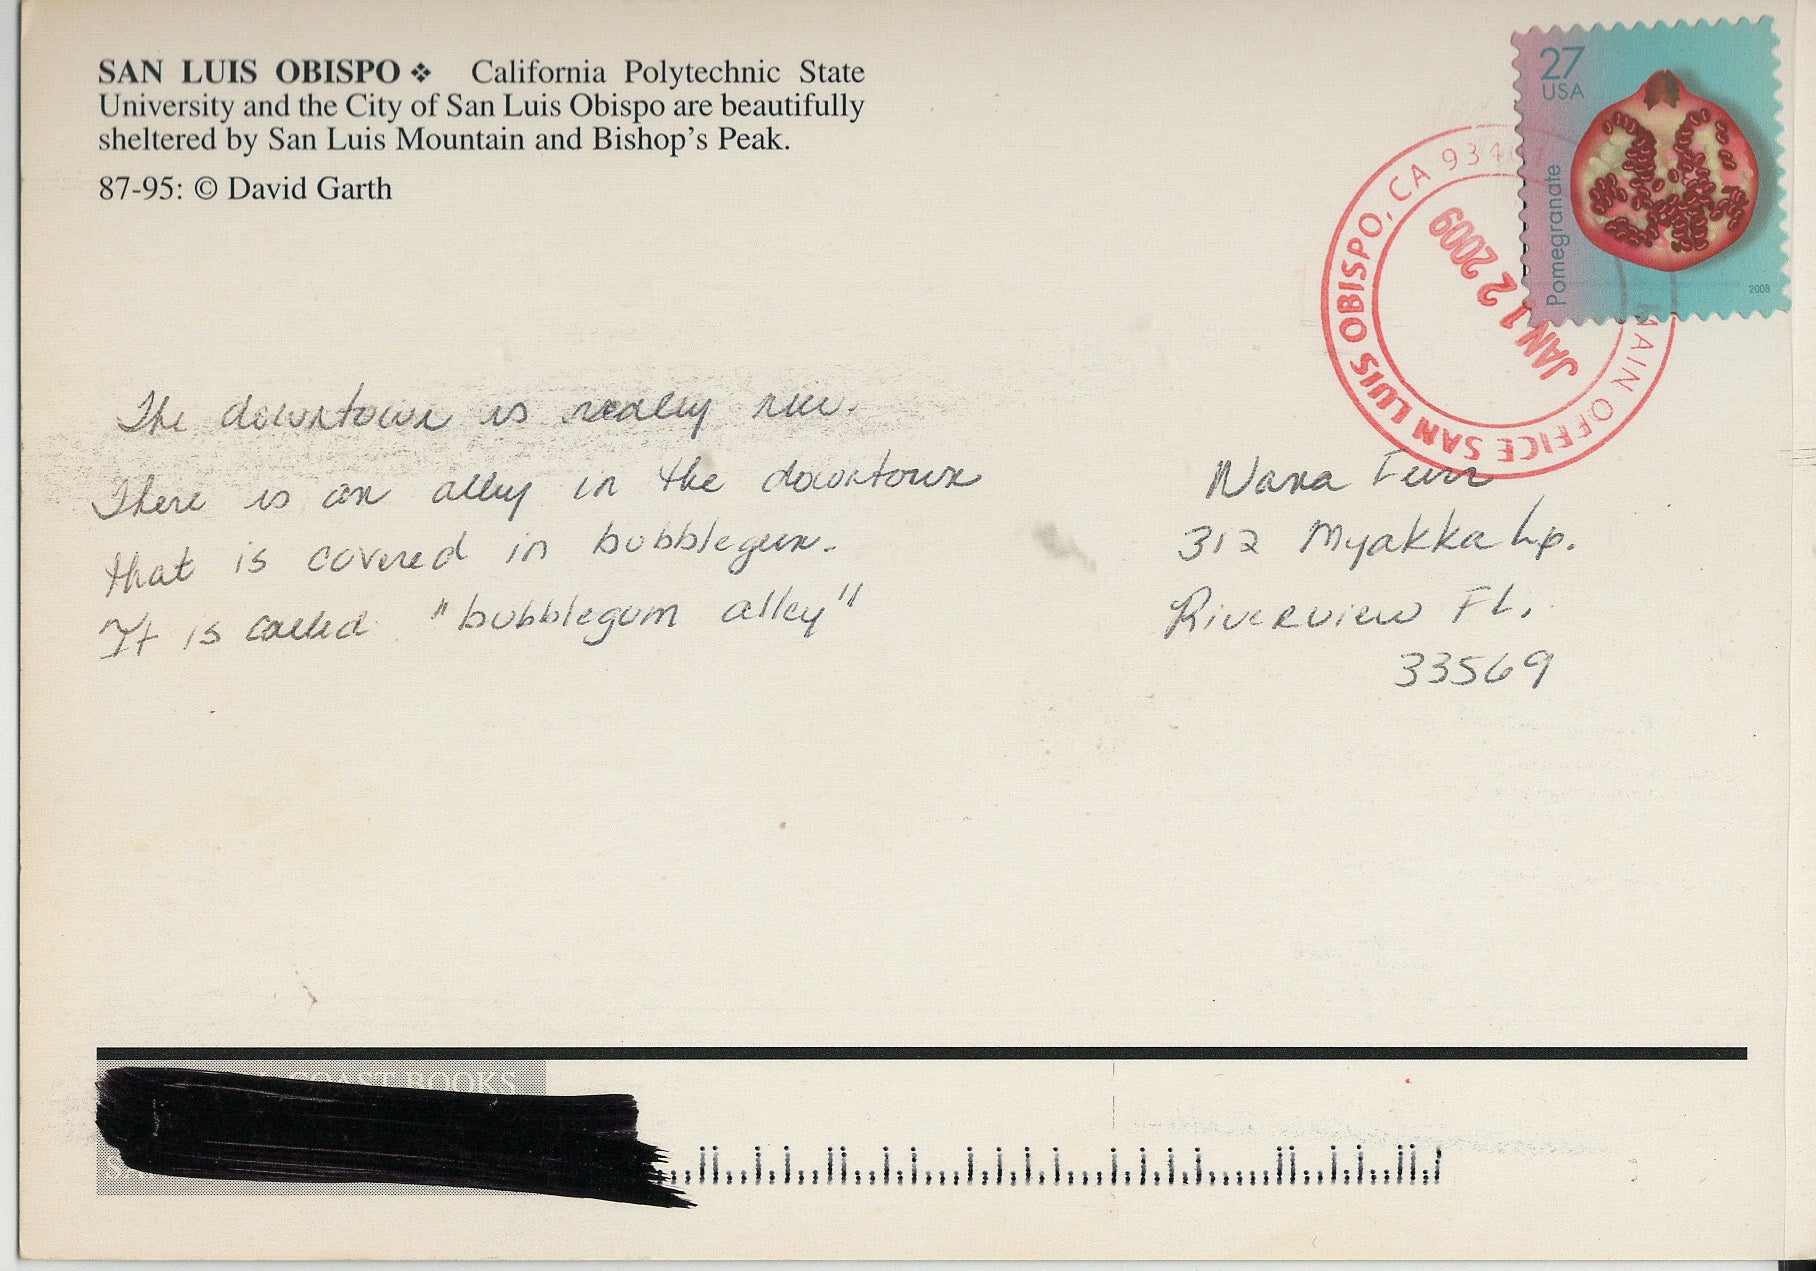 SAN LUIS OBISPO ❖ California Polytechnic State
University and the City of San Luis Obispo are beautifully
sheltered by San Luis Mountain and Bishop's Peak.
87-95: © David Garth
27
USA
Pomegranate
2008
SAN LUIS OBISPO, CA 934
MAIN OFFICE
JAN 12 2009
The downtown is really nice.
There is an alley in the downtown
that is covered in bubblegum.
It is called "bubblegum alley"
Nana Furr
312 Myakka Lp.
Riverview FL.
33569
COAST BOOKS